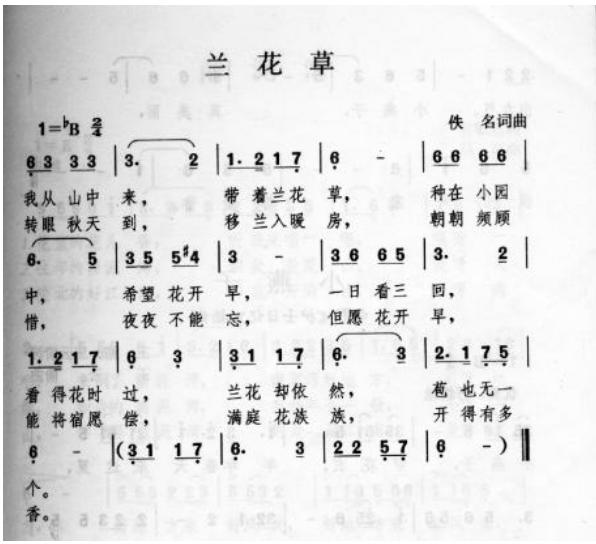 兰花草
1=♭B 2/4 佚 名词曲
6 3 3 3 | 3. 2 | 1. 2 1 7 | 6 - | 6 6 6 6 |
我从 山中 来, 带 着兰花 草, 种在 小园
转眼 秋天 到, 移 兰入暖 房, 朝朝 频顾
6. 5 | 3 5 5 #4 | 3 - | 3 6 6 5 | 3. 2 |
中, 希望 花开 早, 一日 看三 回,
惜, 夜夜 不能 忘, 但愿 花开 早,
1. 2 1 7 | 6 3 | 3 1 1 7 | 6. 3 | 2. 1 7 5 |
看 得花时 过, 兰花 却依 然, 苞 也无一
能 将宿愿 偿, 满庭 花族 族, 开 得有多
6 - | (3 1 1 7 | 6. 3 | 2 2 5 7 | 6 - ) ‖
个。
香。